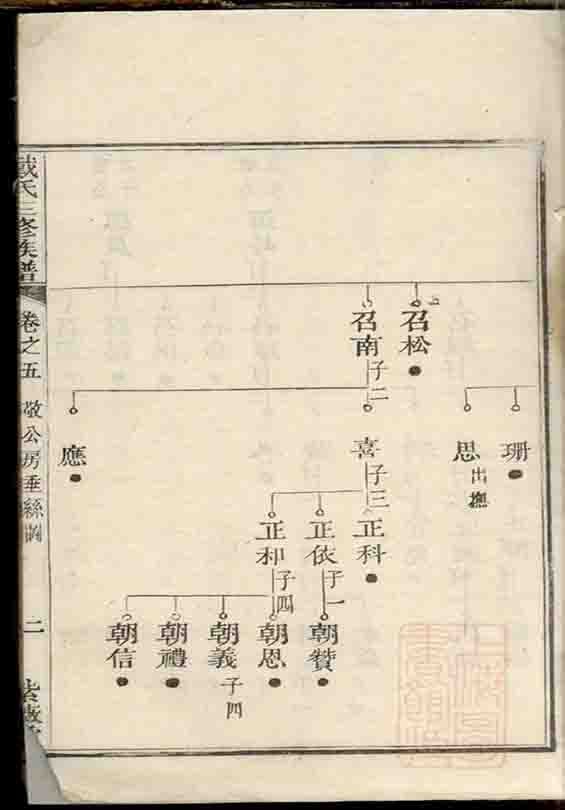 珊
思 出撫
召松
召南 子二
喜 子三
應
正科
正依 子一
正和 子四
朝贊
朝恩
朝義 子四
朝禮
朝信
戴氏三修族譜
卷之五
敬公房垂絲圖
二